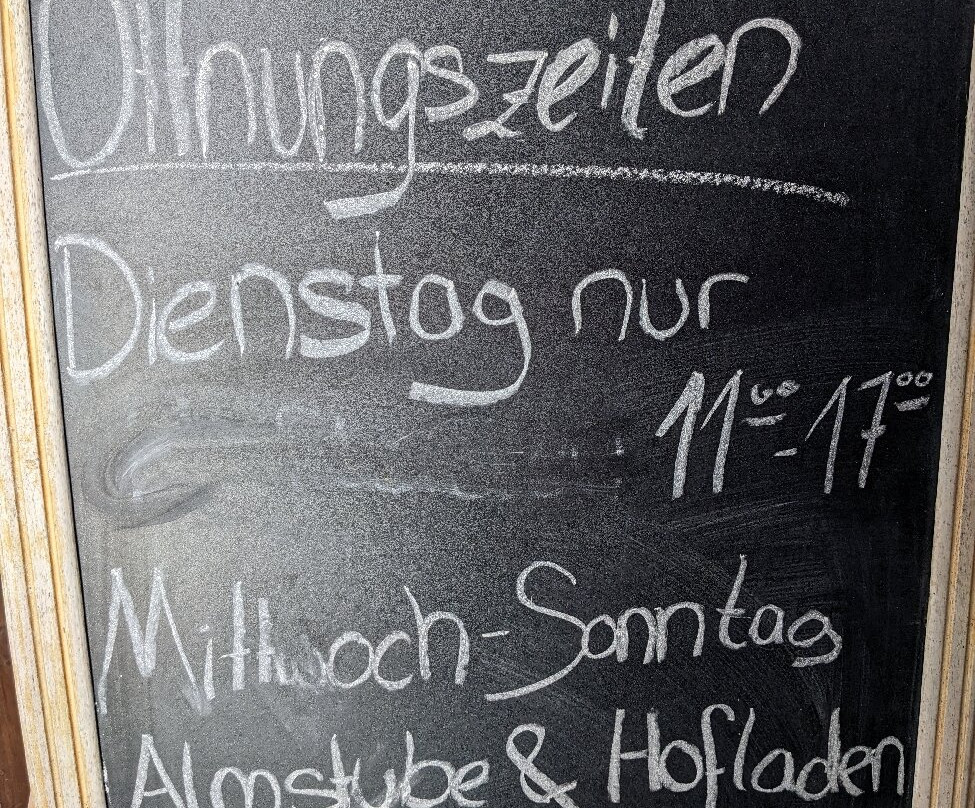 Öffnungszeiten
Dienstag nur
11⁰⁰-17⁰⁰
Mittwoch-Sonntag
Almstube & Hofladen